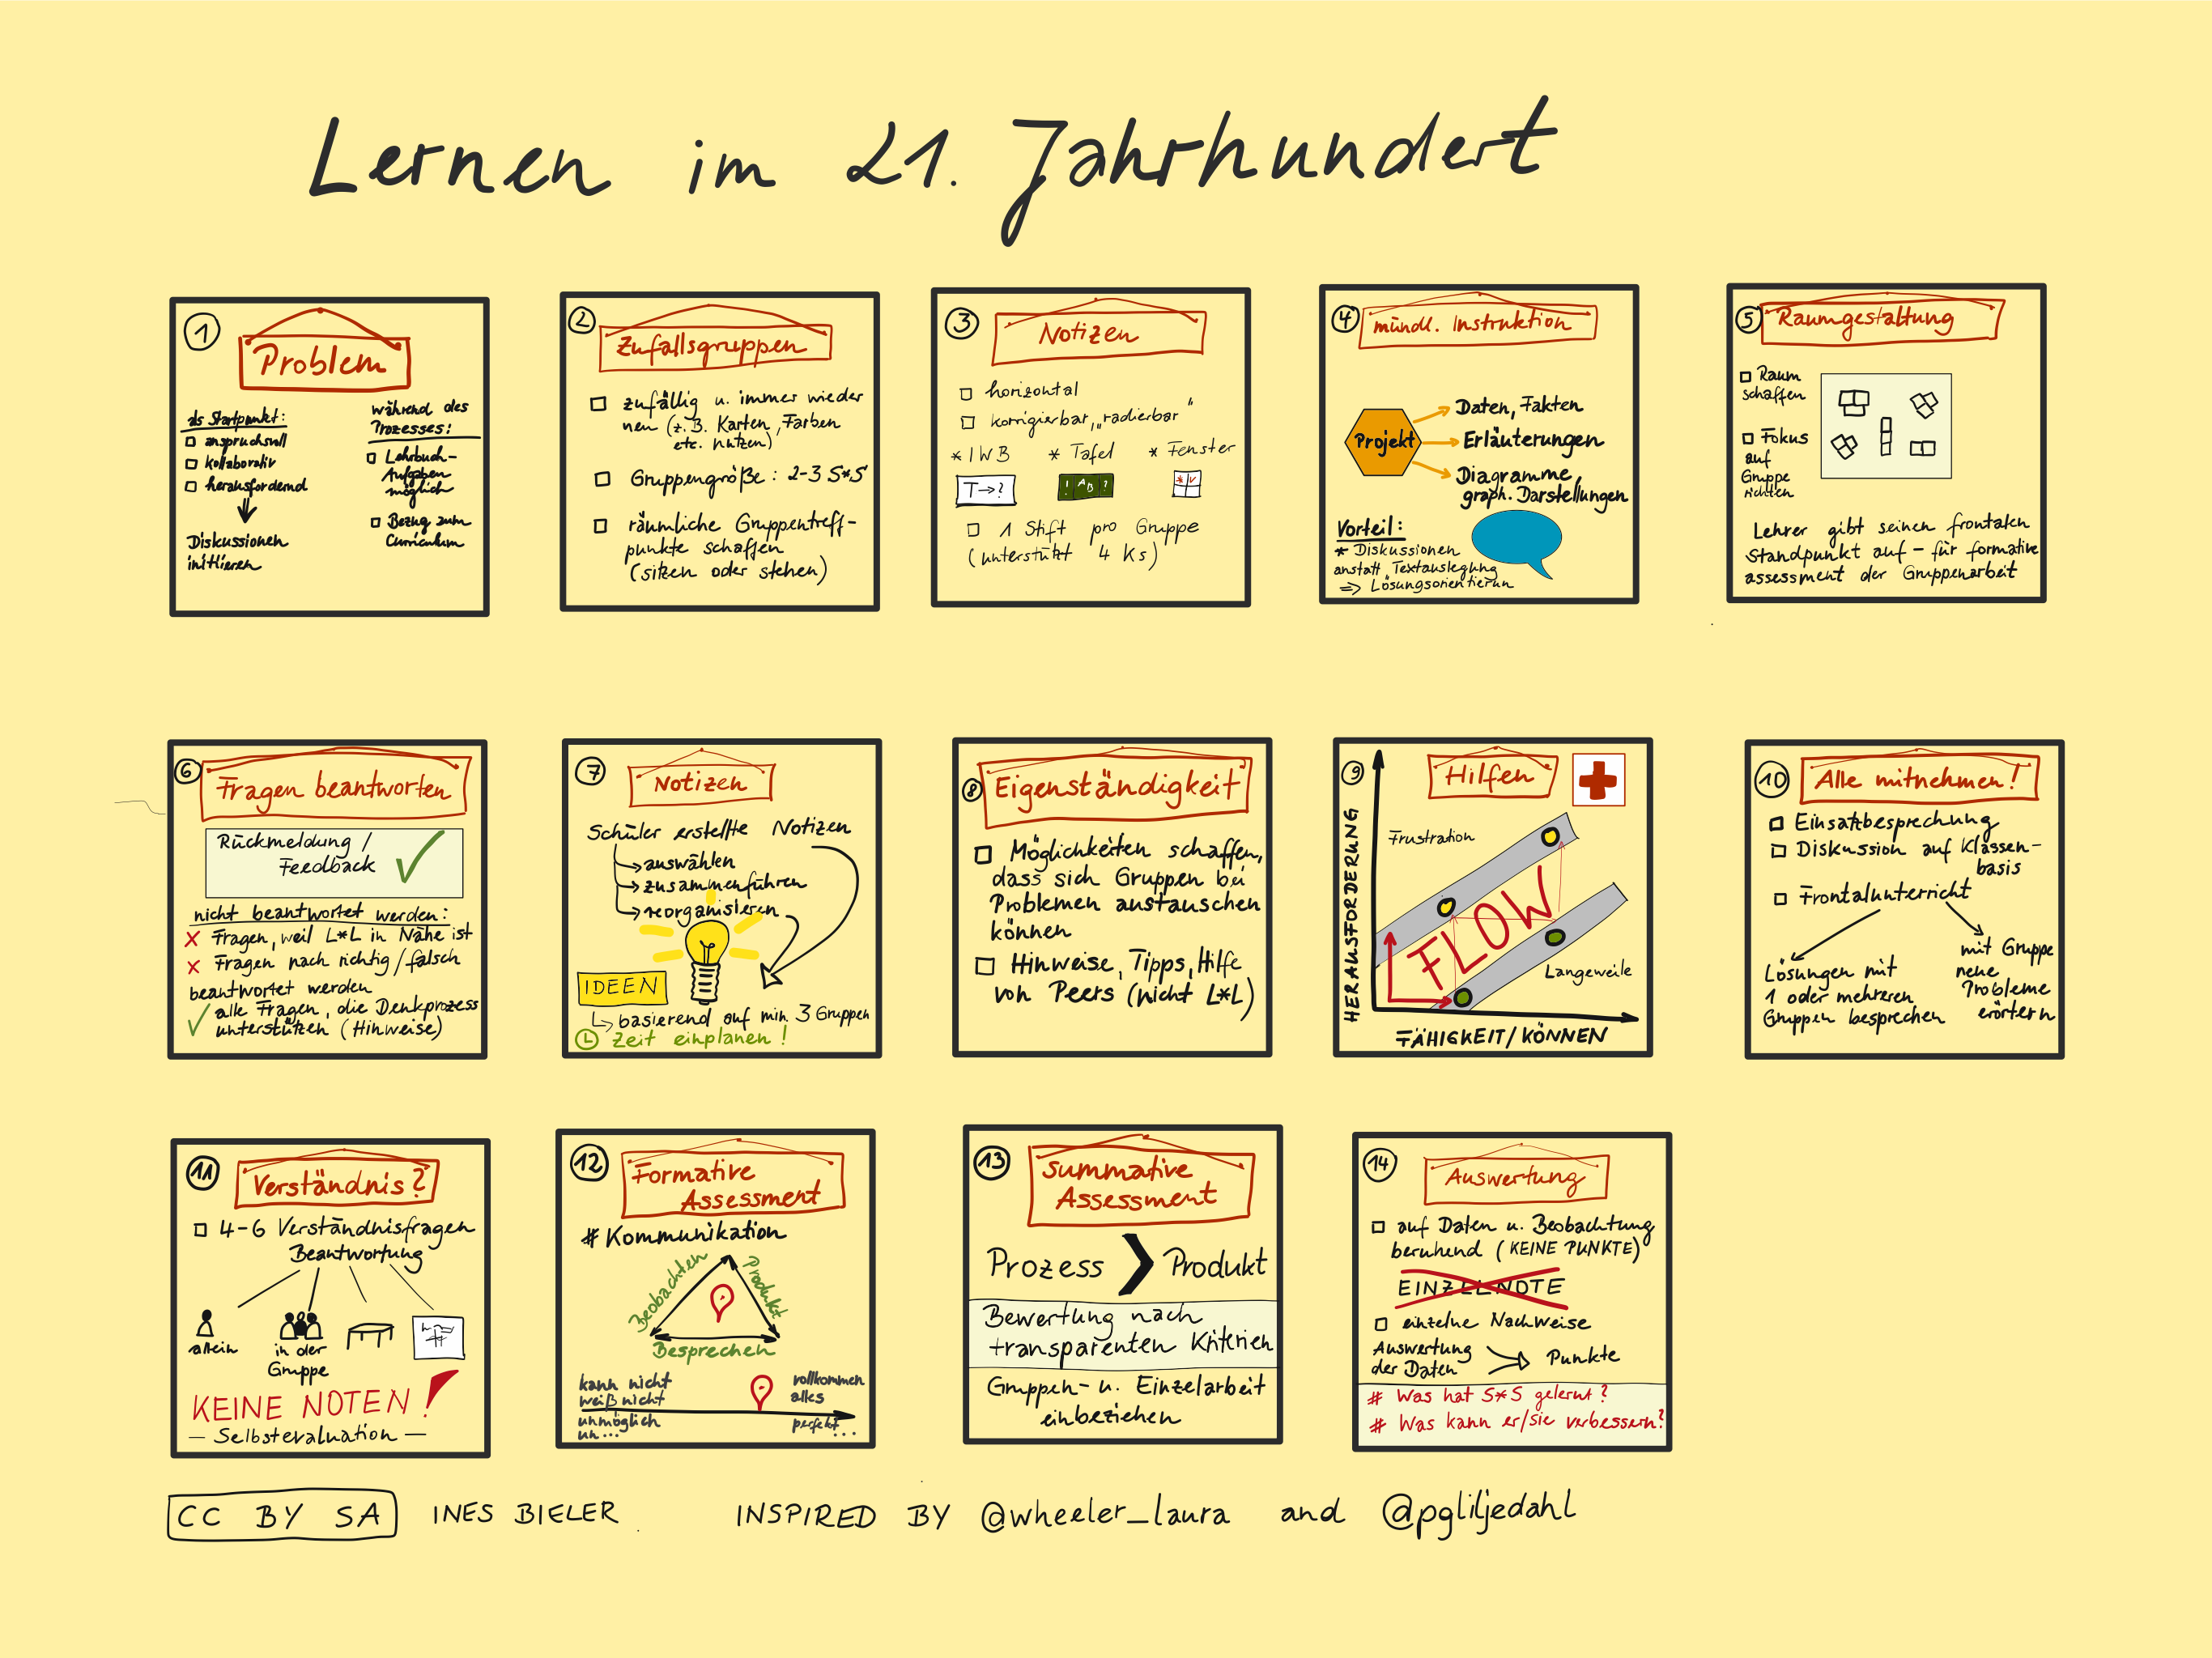 Lernen im 21. Jahrhundert
1
Problem
als Startpunkt:
anspruchsvoll
kollaborativ
herausfordernd
Diskussionen
initiieren
während des
Prozesses:
Lehrbuch-
Aufgaben
möglich
Bezug zum
Curriculum
2
Zufallsgruppen
zufällig u. immer wieder
neu (z.B. Karten, Farben
etc. nutzen)
Gruppengröße: 2-3 S*S
räumliche Gruppentreff-
punkte schaffen
(sitzen oder stehen)
3
Notizen
horizontal
korrigierbar, „radierbar"
* IWB * Tafel * Fenster
T→?
1 Stift pro Gruppe
(unterstützt 4 Ks)
4
mündl. Instruktion
Projekt
Daten, Fakten
Erläuterungen
Diagramme,
graph. Darstellungen
Vorteil:
* Diskussionen
anstatt Textauslegung
⇒ Lösungsorientierun
5
Raumgestaltung
Raum
schaffen
Fokus
auf
Gruppe
richten
Lehrer gibt seinen frontalen
Standpunkt auf - für formative
assessment der Gruppenarbeit
6
Fragen beantworten
Rückmeldung /
Feedback
nicht beantwortet werden:
x Fragen, weil L*L in Nähe ist
x Fragen nach richtig/falsch
beantwortet werden
✓ alle Fragen, die Denkprozess
unterstützen (Hinweise)
7
Notizen
Schüler erstellte Notizen
auswählen
zusammenführen
reorganisieren
IDEEN
basierend auf min. 3 Gruppen
Zeit einplanen!
8
Eigenständigkeit
Möglichkeiten schaffen,
dass sich Gruppen bei
Problemen austauschen
können
Hinweise, Tipps, Hilfe
von Peers (nicht L*L)
9
Hilfen
HERAUSFORDERUNG
Frustration
FLOW
Langeweile
FÄHIGKEIT/KÖNNEN
10
Alle mitnehmen!
Einsatzbesprechung
Diskussion auf Klassen-
basis
Frontalunterricht
Lösungen mit
1 oder mehreren
Gruppen besprechen
mit Gruppe
neue
Probleme
erörtern
11
Verständnis?
4-6 Verständnisfragen
Beantwortung
allein
in der
Gruppe
KEINE NOTEN!
- Selbstevaluation -
12
Formative
Assessment
# Kommunikation
Beobachten
Produkt
Besprechen
kann nicht
weiß nicht
unmöglich
un...
vollkommen
alles
perfekt...
13
Summative
Assessment
Prozess > Produkt
Bewertung nach
transparenten Kriterien
Gruppen- u. Einzelarbeit
einbeziehen
14
Auswertung
auf Daten u. Beobachtung
beruhend (KEINE PUNKTE)
EINZELNOTE
einzelne Nachweise
Auswertung
der Daten
Punkte
# Was hat S*S gelernt?
# Was kann er/sie verbessern?
CC BY SA INES BIELER INSPIRED BY @wheeler_laura and @pgliljedahl